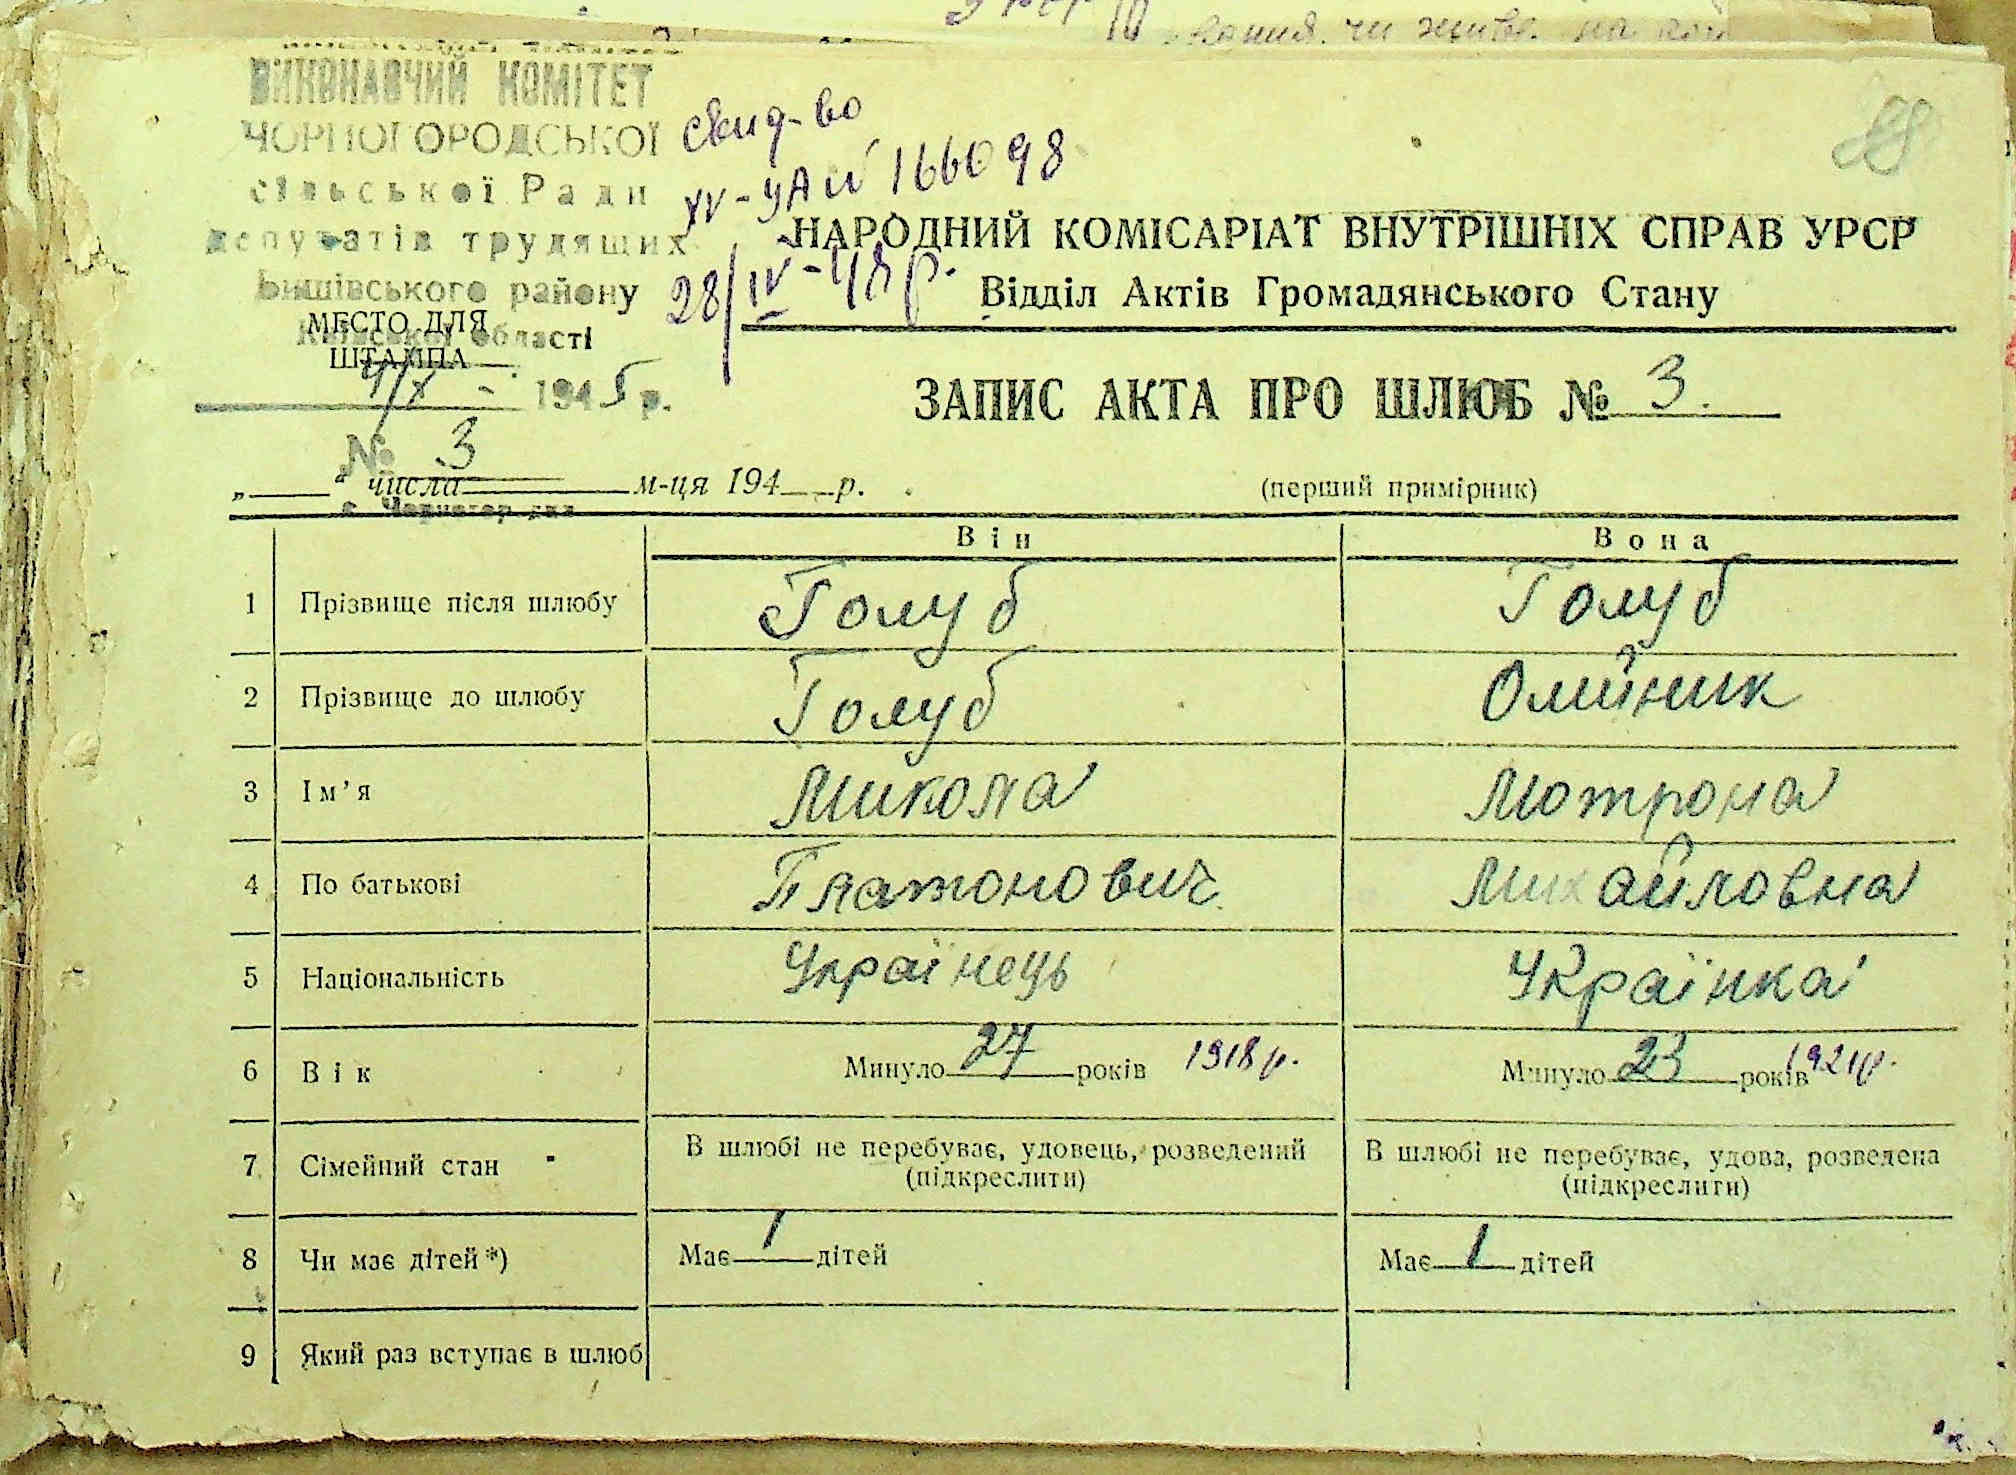 ВИКОНАВЧИЙ КОМІТЕТ
ЧОРНОГОРОДСЬКОЇ
сільської Ради
депутатів трудящих
району
Київської області
МЕСТО ДЛЯ
ШТАМПА
4/X - 1945 р.
№ 3
свид-во
166098
28/IV-48 р.
88
НАРОДНИЙ КОМІСАРІАТ ВНУТРІШНІХ СПРАВ УРСР
Відділ Актів Громадянського Стану
ЗАПИС АКТА ПРО ШЛЮБ № 3.
„ “ числа м-ця 194 р.
(перший примірник)
Він Вона
1 Прізвище після шлюбу Голуб Голуб
2 Прізвище до шлюбу Голуб Олійник
3 Ім’я Микола Мотрона
4 По батькові Платонович Михайловна
5 Національність Українець Українка
6 Вік Минуло 27 років 1918 р. Минуло 23 років 1921р.
7 Сімейний стан В шлюбі не перебуває, удовець, розведений (підкреслити) В шлюбі не перебуває, удова, розведена (підкреслити)
8 Чи має дітей *) Має 1 дітей Має 1 дітей
9 Який раз вступає в шлюб